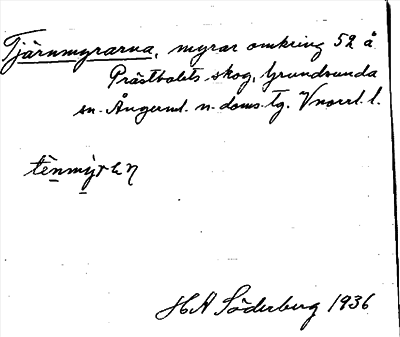 Tjärnmyrarna, myrar omkring 52 å
Prästbolets skog, Grundsunda
sn. Ångerml. n. doms. tg. Vnorrl. l.
tènmýrɛn
H A Söderberg 1936